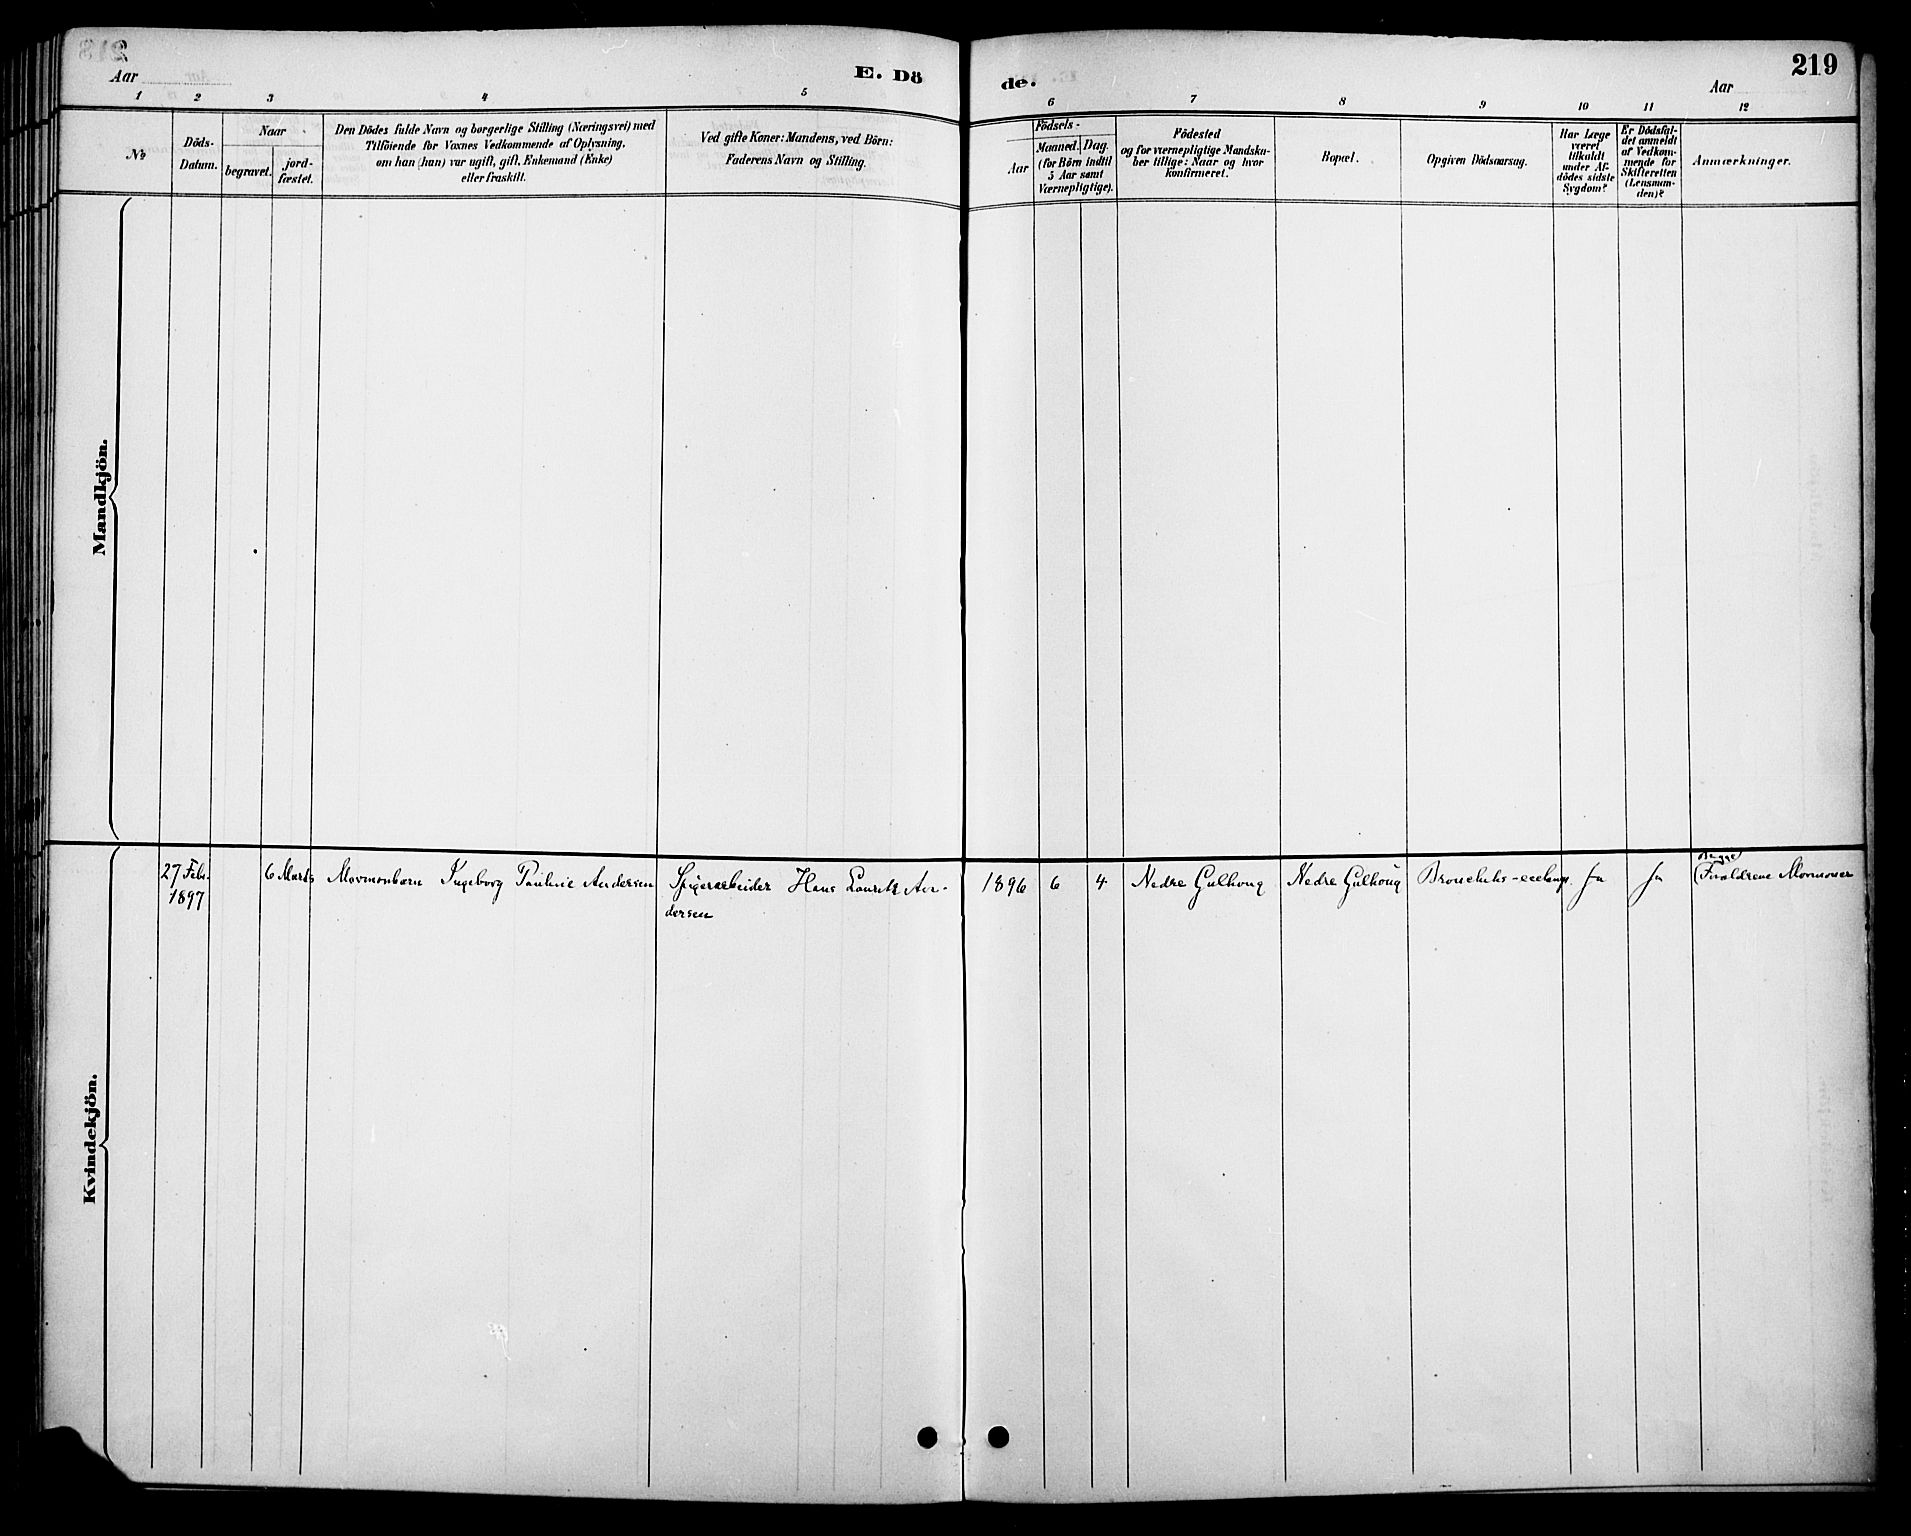 Aar
E. Dö
de.
Aar
219
1 2 3 4 5
6 7 8 9 10 11 12
No
Döds-
Datum.
Naar
begravet.
jord-
fæstet.
Den Dödes fulde Navn og borgerlige Stilling (Næringsvei) med
Tilföiende for Voxnes Vedkommende af Oplysning,
om han (hun) var ugift, gift, Enkemand (Enke)
eller fraskilt.
Ved gifte Koner: Mandens, ved Börn:
Faderens Navn og Stilling.
Födsels-
Aar
Maaned. Dag.
(for Börn indtil
5 Aar samt
Værnepligtige).
Födested
og for værnepligtige Mandska-
ber tillige: Naar og hvor
konfirmeret.
Bopæl.
Opgiven Dödsaarsag.
Har Læge
været
tilkaldt
under Af-
dödes sidste
Sygdom?
Er Dödsfal-
det anmeldt
af Vedkom-
mende for
Skifteretten
(Lensman-
den)?
Anmærkninger.
Mandkjön.
Kvindekjön.
27 Febr.
1897
6 Marts
Mormonbarn Ingeborg Pauline Andersen
Spigerarbeider Hans Lauritz An-
dersen
1896 6 4
Nedre Gulhoug
Nedre Gulhoug
ja
ja
Begge
Forældrene Mormoner